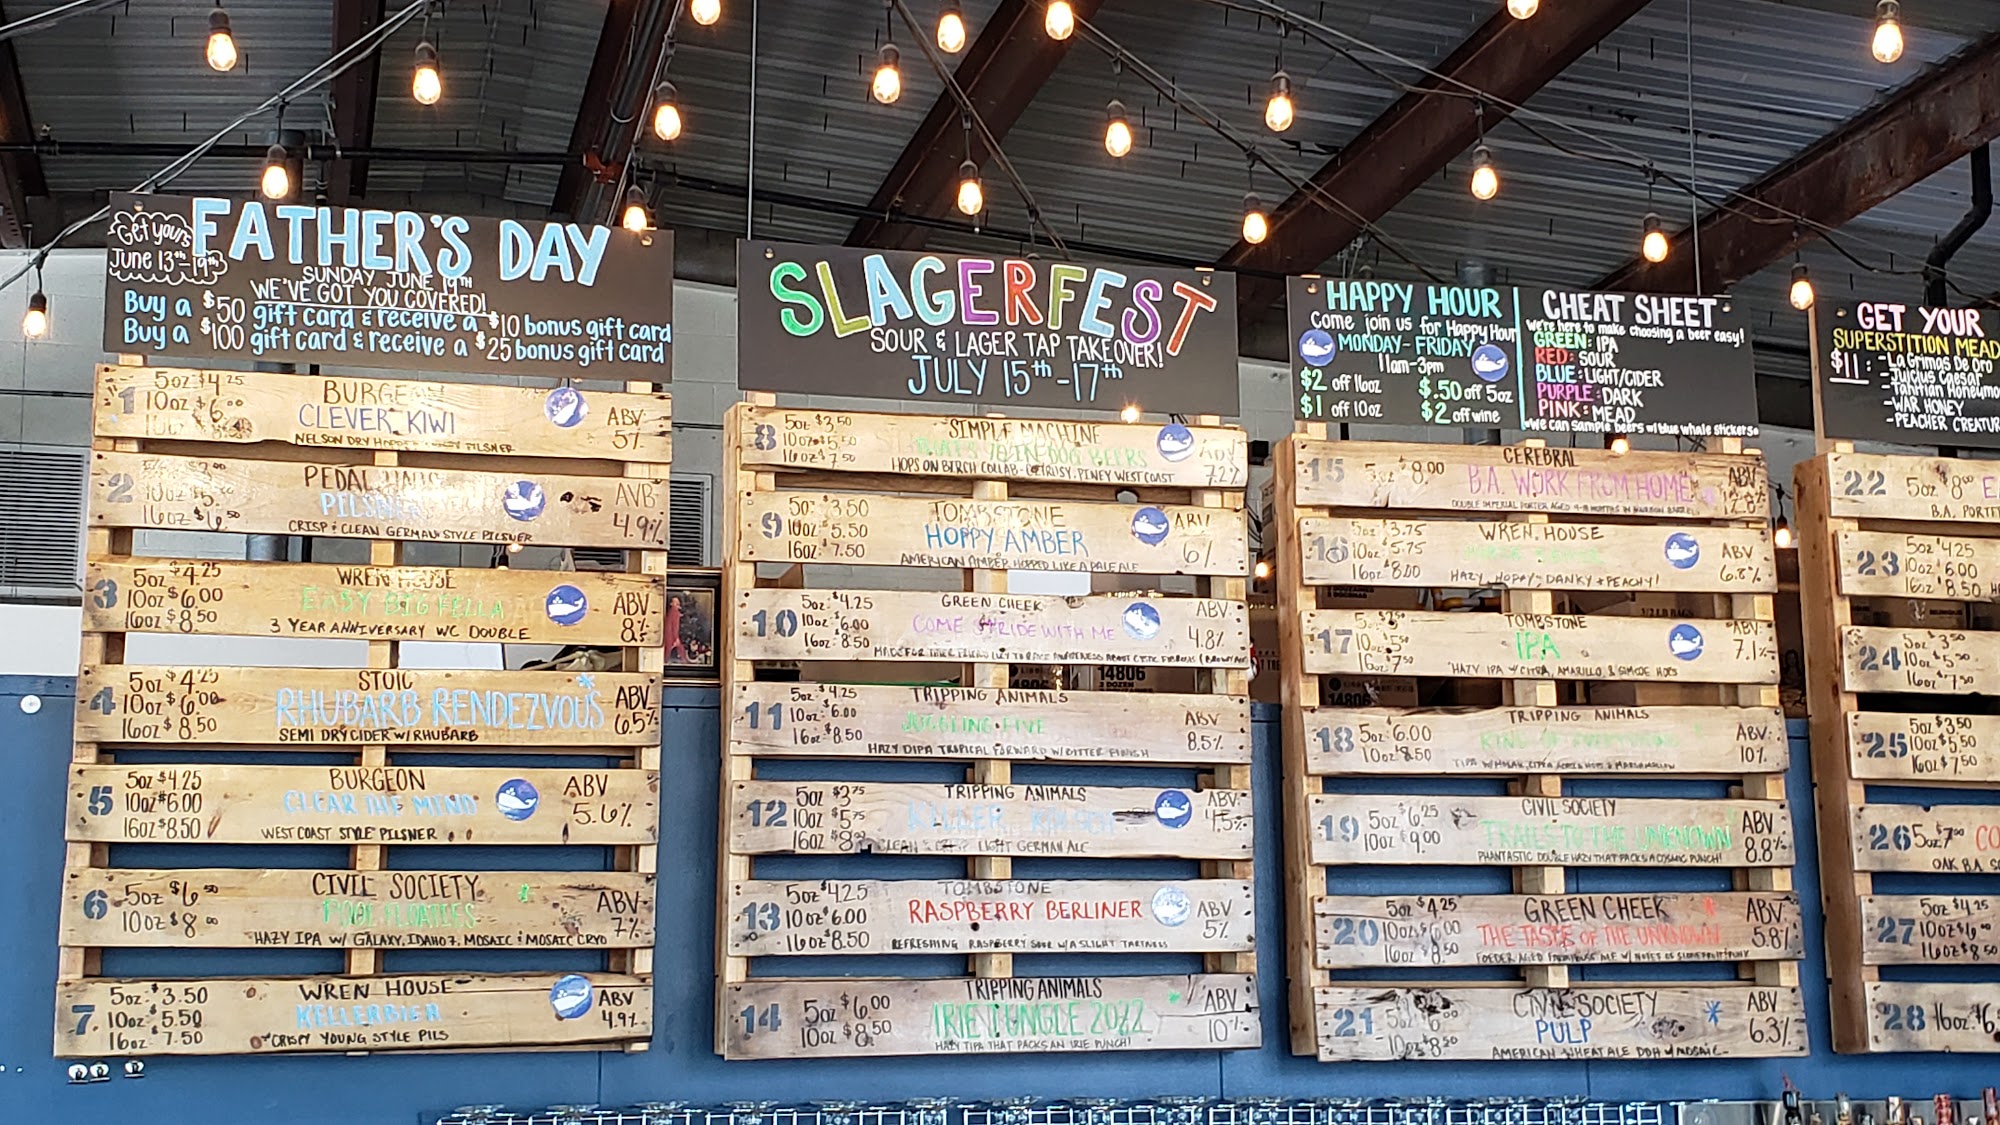 Get yours
June 13th-19th
FATHER'S DAY
SUNDAY JUNE 19TH
WE'VE GOT YOU COVERED!
Buy a $50 gift card & receive a $10 bonus gift card
Buy a $100 gift card & receive a $25 bonus gift card
1
5oz $4.25
10oz $6.00
BURGEON
CLEVER KIWI
PILSNER
ABV
5%
2
10oz
16oz $6.50
PEDAL HAUS
PILSNER
CRISP & CLEAN GERMAN STYLE PILSNER
AVB
4.9%
3
5oz $4.25
10oz $6.00
16oz $8.50
WREN HOUSE
EASY BIG FELLA
3 YEAR ANNIVERSARY WC DOUBLE
ABV
8%
4
5oz $4.25
10oz $6.00
16oz $8.50
STOIC
RHUBARB RENDEZVOUS
SEMI DRY CIDER W/RHUBARB
ABV
6.5%
5
5oz $4.25
10oz $6.00
16oz $8.50
BURGEON
CLEAR THE MIND
WEST COAST STYLE PILSNER
ABV
5.6%
6
5oz $6.50
10oz $8.00
CIVIL SOCIETY
POOL FLOATIES
HAZY IPA W/ GALAXY, IDAHO7, MOSAIC & MOSAIC CRYO
ABV
7%
7
5oz $3.50
10oz $5.50
16oz $7.50
WREN HOUSE
KELLERBIER
CRISPY YOUNG STYLE PILS
ABV
4.9%
SLAGERFEST
SOUR & LAGER TAP TAKEOVER!
JULY 15th-17th
8
5oz $3.50
10oz $5.50
16oz $7.50
SIMPLE MACHINE
BEERS
HOPS ON BIRCH COLLAB- PINEY WEST COAST
ABV
7.2%
9
5oz $3.50
10oz $5.50
16oz $7.50
TOMBSTONE
HOPPY AMBER
AMERICAN AMBER HOPPED LIKE A PALE ALE
ABV
6%
10
5oz $4.25
10oz $6.00
16oz $8.50
GREEN CHEEK
COME STRIDE WITH ME
ABV
4.8%
11
5oz $4.25
10oz $6.00
16oz $8.50
TRIPPING ANIMALS
JUGGLING FIVE
HAZY DIPA TROPICAL FORWARD W/BITTER FINISH
ABV
8.5%
12
5oz $3.75
10oz $5.75
16oz $8.00
TRIPPING ANIMALS
KILLER KOLSCH
LIGHT GERMAN ALE
ABV
4.5%
13
5oz $4.25
10oz $6.00
16oz $8.50
TOMBSTONE
RASPBERRY BERLINER
REFRESHING RASPBERRY SOUR W/A SLIGHT TARTNESS
ABV
5%
14
5oz $6.00
10oz $8.50
TRIPPING ANIMALS
IRIE JUNGLE 2022
HAZY TIPA THAT PACKS AN IRIE PUNCH!
ABV
10%
HAPPY HOUR
Come join us for Happy Hour
MONDAY-FRIDAY
11am-3pm
$2 off 16oz
$.50 off 5oz
$1 off 10oz
$2 off wine
CHEAT SHEET
We're here to make choosing a beer easy!
GREEN: IPA
RED: SOUR
BLUE: LIGHT/CIDER
PURPLE: DARK
PINK: MEAD
we can sample beers w/ blue whale stickers
15
5oz $8.00
CEREBRAL
B.A. WORK FROM HOME
ABV
16
5oz $3.75
10oz $5.75
16oz $8.00
WREN HOUSE
HAZY, HOPPY, DANKY & PEACHY!
ABV
6.8%
17
TOMBSTONE
IPA
HAZY IPA W/ CITRA, AMARILLO, & SIMCOE HOPS
ABV
7.1%
18
5oz $6.00
10oz $8.50
TRIPPING ANIMALS
ABV:
10%
19
5oz $6.25
10oz $9.00
CIVIL SOCIETY
TRAILS TO THE UNKNOWN
PHANTASTIC DOUBLE HAZY THAT PACKS A COSMIC PUNCH!
ABV
8.8%
20
5oz $4.25
10oz $6.00
16oz $8.50
GREEN CHEEK
THE TASTE OF THE UNKNOWN
ABV
5.8%
21
CIVIL SOCIETY
PULP
AMERICAN WHEAT ALE DDH W/MOSAIC
ABV
6.3%
GET YOUR
SUPERSTITION MEAD
$11:
-La Grimas De Oro
-Julius Caesar
-Tahitian Honeymo
-WAR HONEY
-PEACHER CREATUR
22
5oz $8.00
B.A. PORTE
23
5oz $4.25
10oz $6.00
16oz $8.50
24
5oz $3.50
10oz $5.50
16oz $7.50
25
5oz $3.50
10oz $5.50
16oz $7.50
26
5oz $7.00
CO
OAK B.A. SO
27
5oz $4.25
10oz $6.00
16oz $8.50
28
16oz $6.
14806